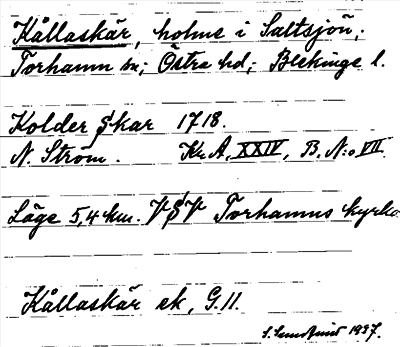 Kållaskär, holme i Saltsjön,
Torhamn sn; Östra hd; Blekinge l.
Kolder Skar 1718.
N. Ström. Kr. A. XXIV, B. N:o VII.
Läge 5,4 km. VSV Torhamns kyrka.
Kållaskär ek, G.11.
1937.